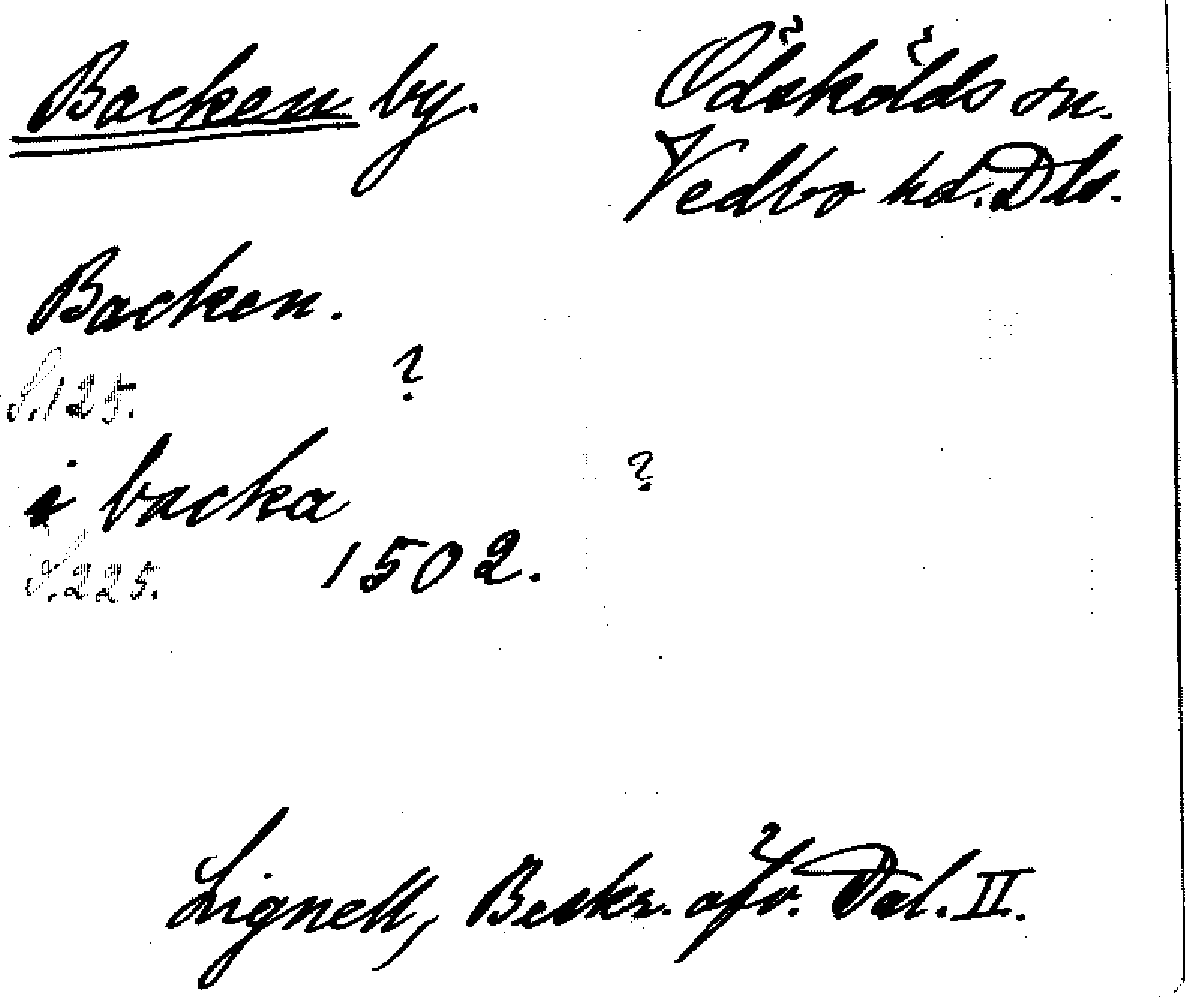 Backen by.
Ödskölds sn.
Vedbo hd. Dls.
Backen.
S.125.
?
i backa
?
S.225.
1502.
Lignell, Beskr. öfv. Dal. II.